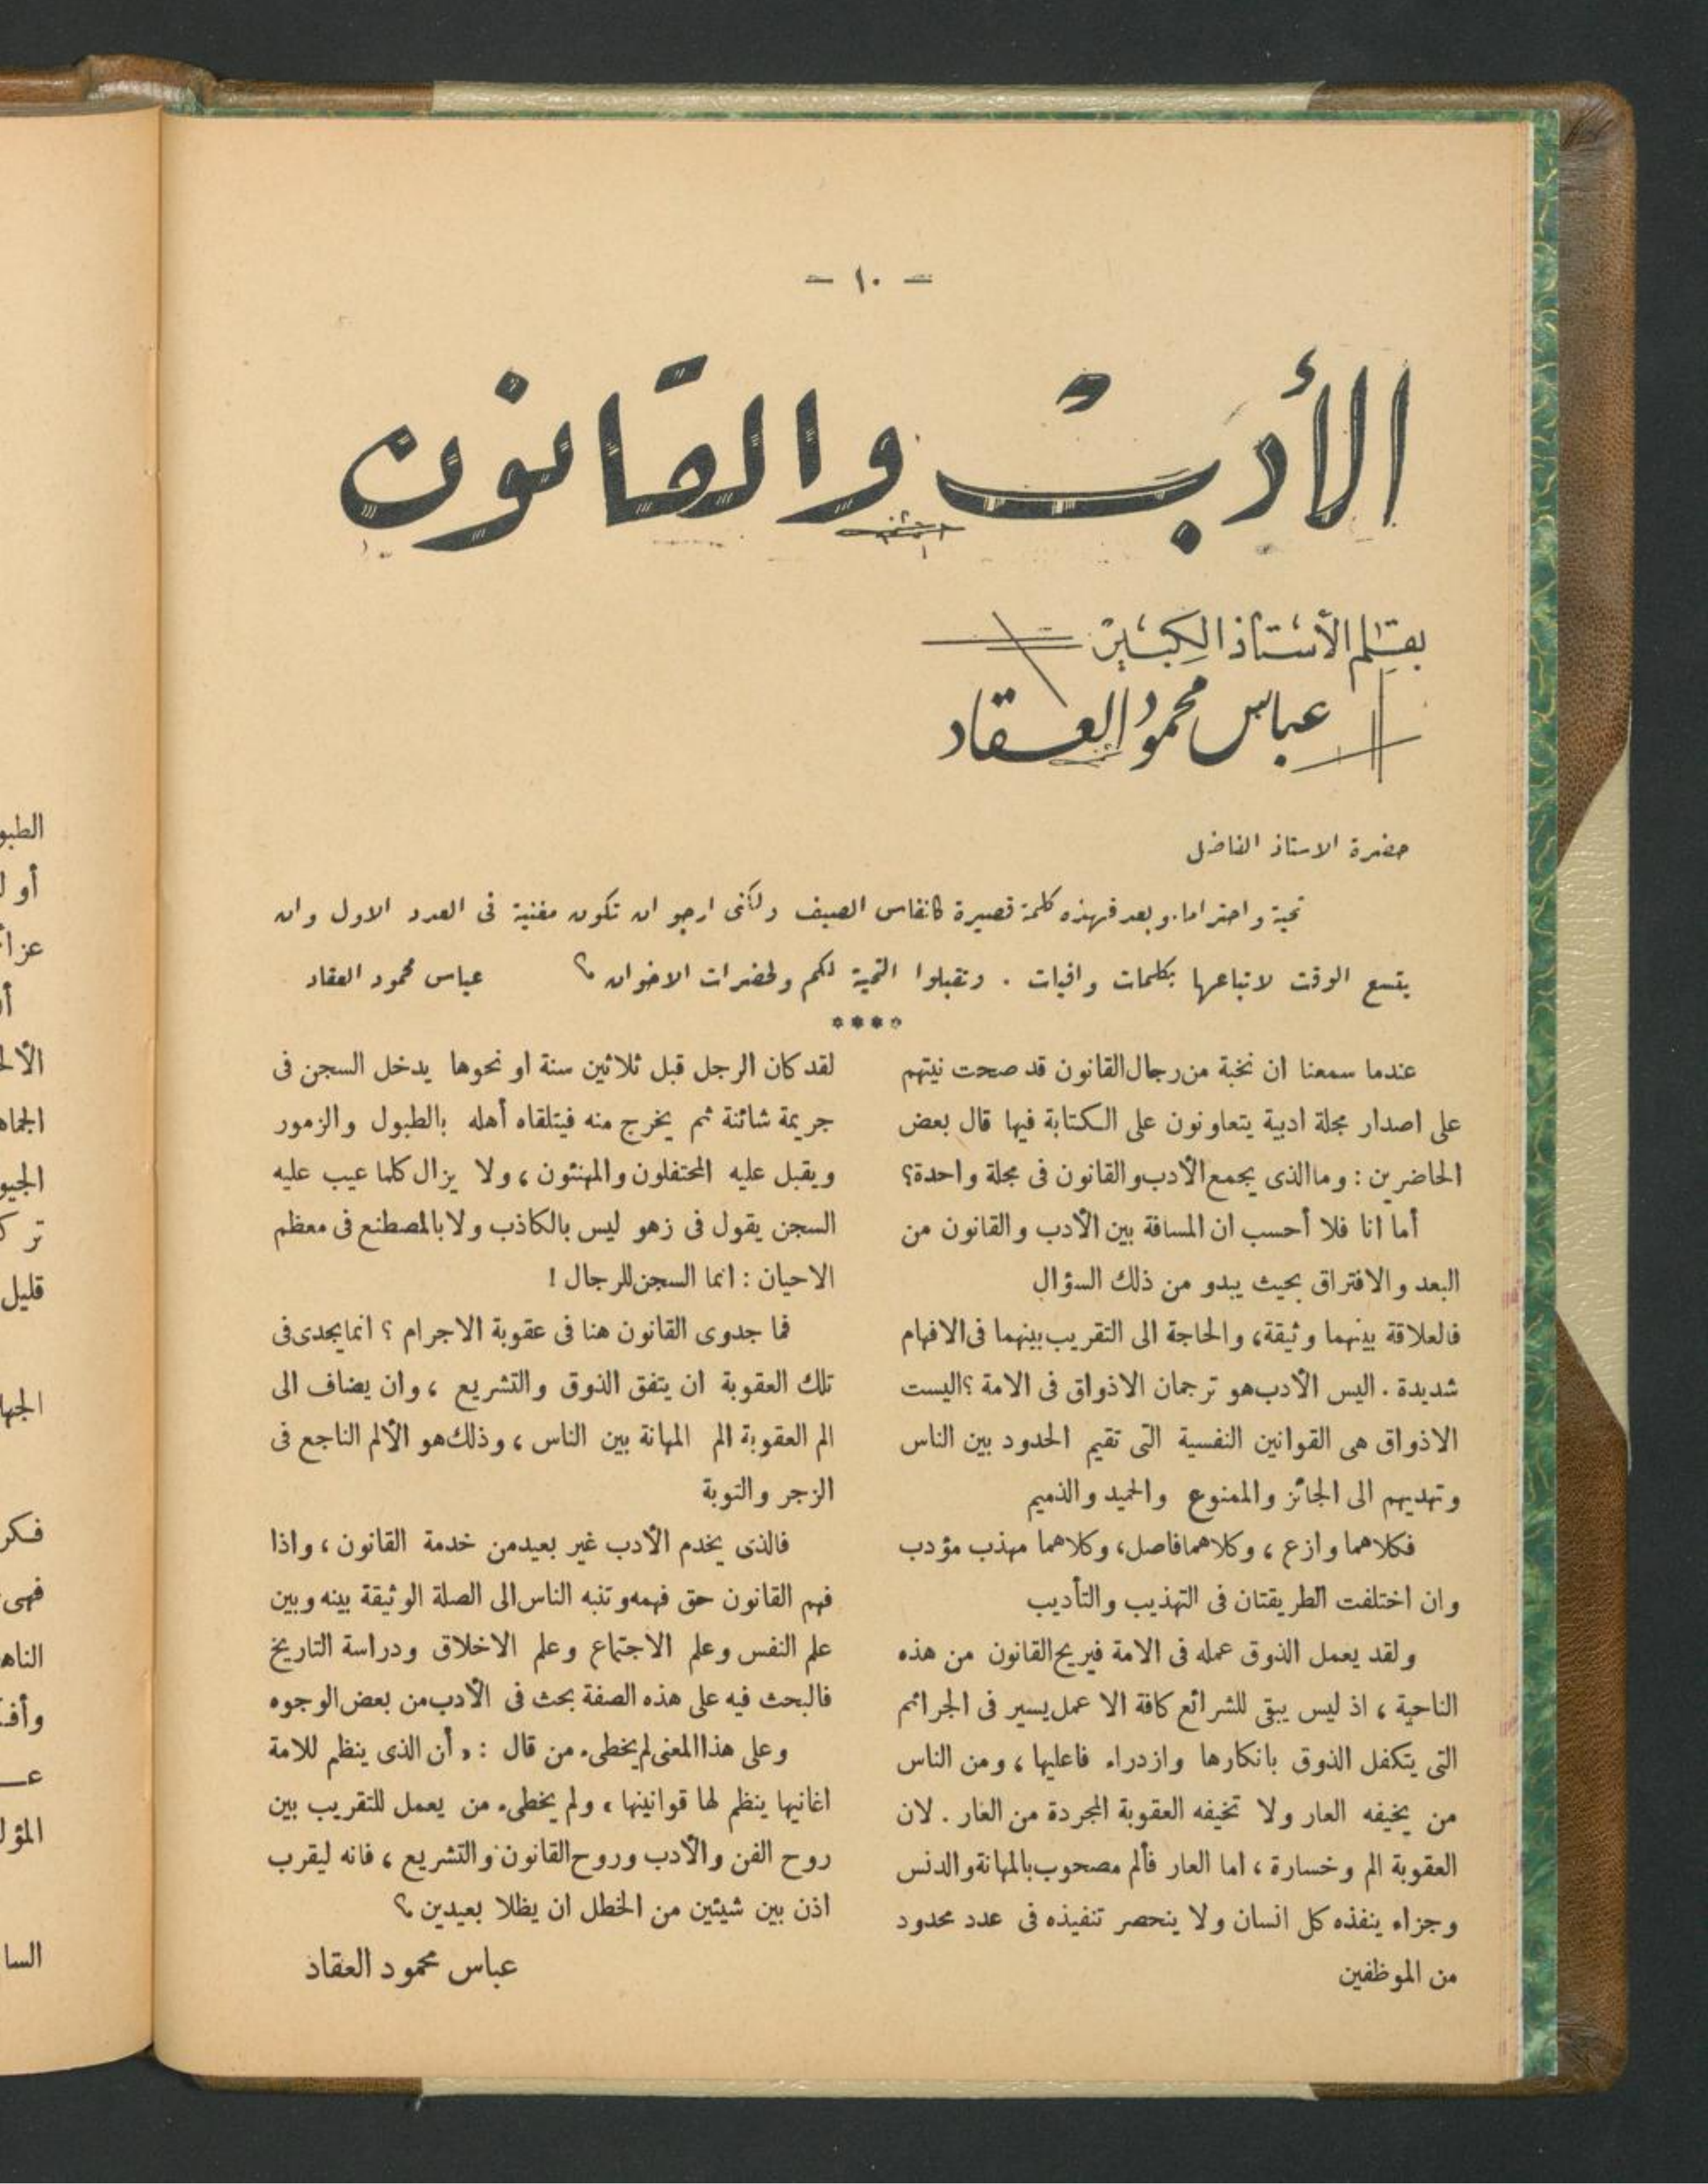 - ١٠ -
الأدب والقانون
بقلم الأستاذ الكبير
عباس محمود العقاد
حضرة الاستاذ الفاضل
تحية واحتراما. وبعد فهذه كلمة قصيرة كانفاس الصيف ولكنى ارجو ان تكون مغنية فى العدد الاول وان
يتسع الوقت لاتباعها بكلمات وافيات . وتقبلوا التحية لكم ولحضرات الاخوان ؟ عباس محمود العقاد
****
عندما سمعنا ان نخبة من رجال القانون قد صحت نيتهم
على اصدار مجلة ادبية يتعاونون على الكتابة فيها قال بعض
الحاضرين : وما الذى يجمع الأدب والقانون فى مجلة واحدة؟
أما انا فلا أحسب ان المسافة بين الأدب والقانون من
البعد والافتراق بحيث يبدو من ذلك السؤال
فالعلاقة بينهما وثيقة، والحاجة الى التقريب بينهما فى الافهام
شديدة . اليس الأدب هو ترجمان الاذواق فى الامة ؟ اليست
الاذواق هى القوانين النفسية التى تقيم الحدود بين الناس
وتهديهم الى الجائز والممنوع والحميد والذميم
فكلاهما وازع ، وكلاهما فاصل، وكلاهما مهذب مؤدب
وان اختلفت الطريقتان فى التهذيب والتأديب
ولقد يعمل الذوق عمله فى الامة فيريح القانون من هذه
الناحية ، اذ ليس يبقى للشرائع كافة الا عمل يسير فى الجرائم
التى يتكفل الذوق بانكارها وازدراء فاعليها ، ومن الناس
من يخيفه العار ولا تخيفه العقوبة المجردة من العار . لان
العقوبة الم وخسارة ، اما العار فألم مصحوب بالمهانة والدنس
وجزاء ينفذه كل انسان ولا ينحصر تنفيذه فى عدد محدود
من الموظفين
لقد كان الرجل قبل ثلاثين سنة او نحوها يدخل السجن فى
جريمة شائنة ثم يخرج منه فيتلقاه أهله بالطبول والزمور
ويقبل عليه المحتفلون والمهنئون ، ولا يزال كلما عيب عليه
السجن يقول فى زهو ليس بالكاذب ولا بالمصطنع فى معظم
الاحيان : انما السجن للرجال !
فما جدوى القانون هنا فى عقوبة الاجرام ؟ انما يجدى فى
تلك العقوبة ان يتفق الذوق والتشريع ، وان يضاف الى
الم العقوبة الم المهانة بين الناس ، وذلك هو الألم الناجع فى
الزجر والتوبة
فالذى يخدم الأدب غير بعيد من خدمة القانون ، واذا
فهم القانون حق فهمه وتنبه الناس الى الصلة الوثيقة بينه وبين
علم النفس وعلم الاجتماع وعلم الاخلاق ودراسة التاريخ
فالبحث فيه على هذه الصفة بحث فى الأدب من بعض الوجوه
وعلى هذا المعنى لم يخطىء من قال : « أن الذى ينظم للامة
اغانيها ينظم لها قوانينها ، ولم يخطىء من يعمل للتقريب بين
روح الفن والأدب وروح القانون والتشريع ، فانه ليقرب
اذن بين شيئين من الخطل ان يظلا بعيدين ؟
عباس محمود العقاد